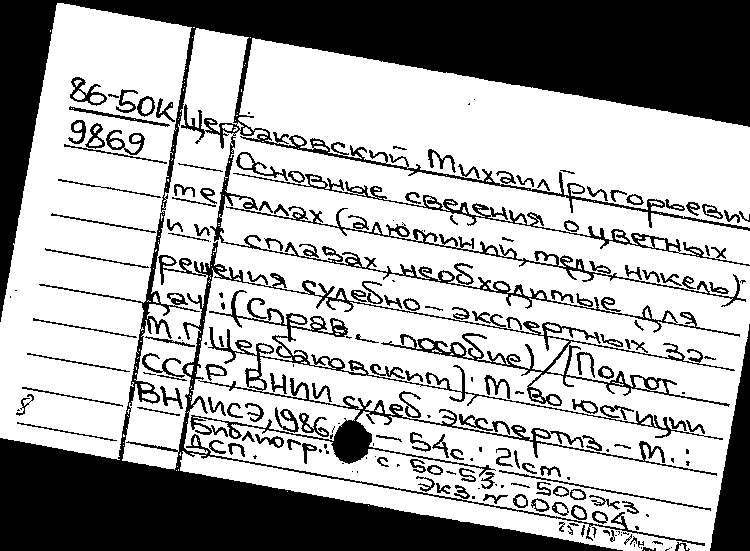 86-50К Щербаковский, Михаил Григорьевич
9869 Основные сведения о цветных
металлах (алюминий, медь, никель)
и их сплавах, необходимые для
решения судебно-экспертных за-
дач : (Справ. пособие) / [Подгот.
М.Г. Щербаковским]; М-во юстиции
СССР, ВНИИ судеб. экспертиз. – М. :
ВНИИСЭ, 1986. – 54с. ; 21см.
Библиогр.: с. 50-53. – 500экз.
ДСП. Экз. № 000004.
8